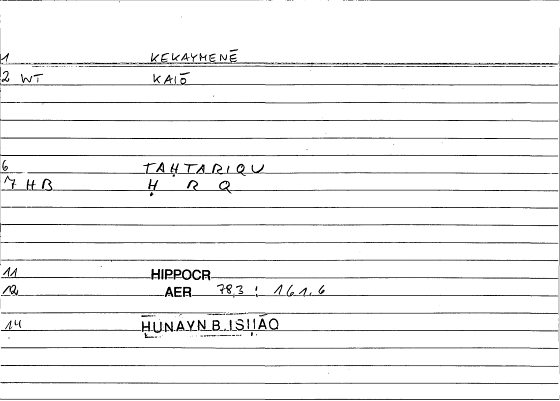 1 KEKAYMENĒ
2 WT KAIŌ
6 TAḤTARIQU
7 HB Ḥ R Q
11 HIPPOCR
12 AER 78,3 : 161,6
14 ḤUNAYN B. ISḤĀQ